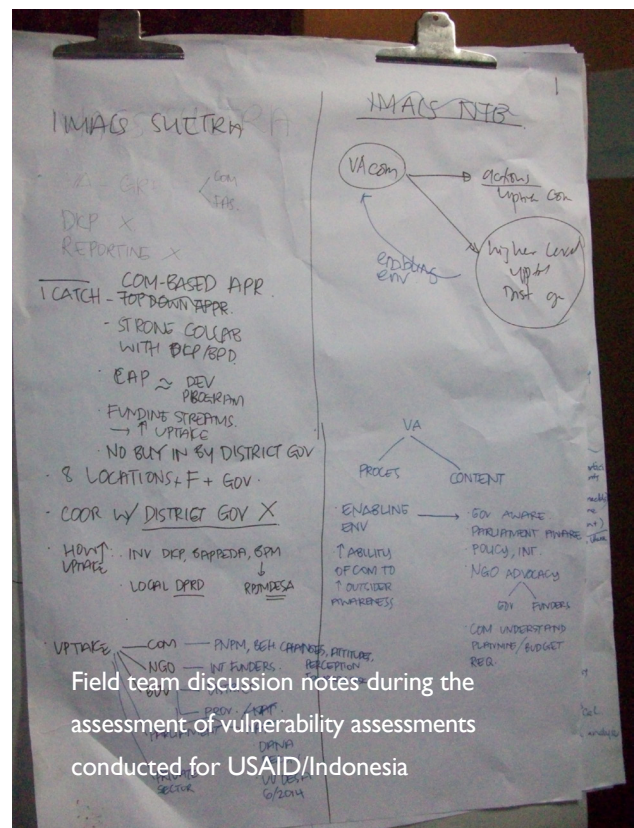 IMACS SULTRA
COM
FAS.
DKP X
REPORTING X
1 CATCH - COM-BASED APR
TOP DOWN APPR.
- STRONG COLLAB
WITH DKP/BPD
- CAP ~ DEV
PROGRAM
- FUNDING STREAMS.
→ ↑ UPTAKE
- NO BUY IN BY DISTRICT GOV
- 8 LOCATIONS + F + GOV.
- COOR W/ DISTRICT GOV X
- HOW ↑ UPTAKE : INV DKP, BAPPEDA, BPM
LOCAL DPRD
RPJMDESA
- UPTAKE
COM - PNPM, BEH CHANGES, ATTITUDE,
PERCEPTION
NGO - INT FUNDERS.
PROV.
DANA
SECTOR
6/2014
IMACS NTB
1
VA com
actions
uptake com
higher level
enabling
env
VA
PROCES
CONTENT
- ENABLING
ENV
↑ ABILITY
OF COM TO
↑ OUTSIDER
AWARENESS
- GOV AWARE
PARLIAMENT AWARE
POLICY, INT.
- NGO ADVOCACY
GOV FUNDERS
- COM UNDERSTAND
PLANNING/BUDGET
REQ.
Field team discussion notes during the
assessment of vulnerability assessments
conducted for USAID/Indonesia